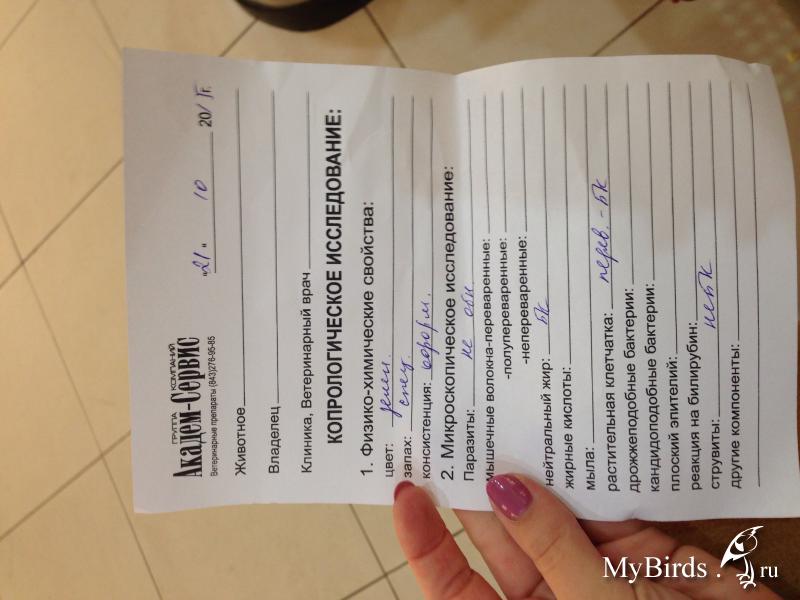 ГРУППА КОМПАНИЙ
Академ-Сервис
Ветеринарные препараты (843)276-95-85
"21" 10 2015г.
Животное
Владелец
Клиника, Ветеринарный врач
КОПРОЛОГИЧЕСКОЕ ИССЛЕДОВАНИЕ:
1. Физико-химические свойства:
цвет: зелен.
запах: спец.
консистенция: оформ.
2. Микроскопическое исследование:
Паразиты: не обн.
мышечные волокна-переваренные:
-полупереваренные:
-непереваренные:
нейтральный жир: бк
жирные кислоты:
мыла:
растительная клетчатка: перев. - бк
дрожжеподобные бактерии:
кандидоподобные бактерии:
плоский эпителий:
реакция на билирубин:
струвиты: небк
другие компоненты:
MyBirds.ru